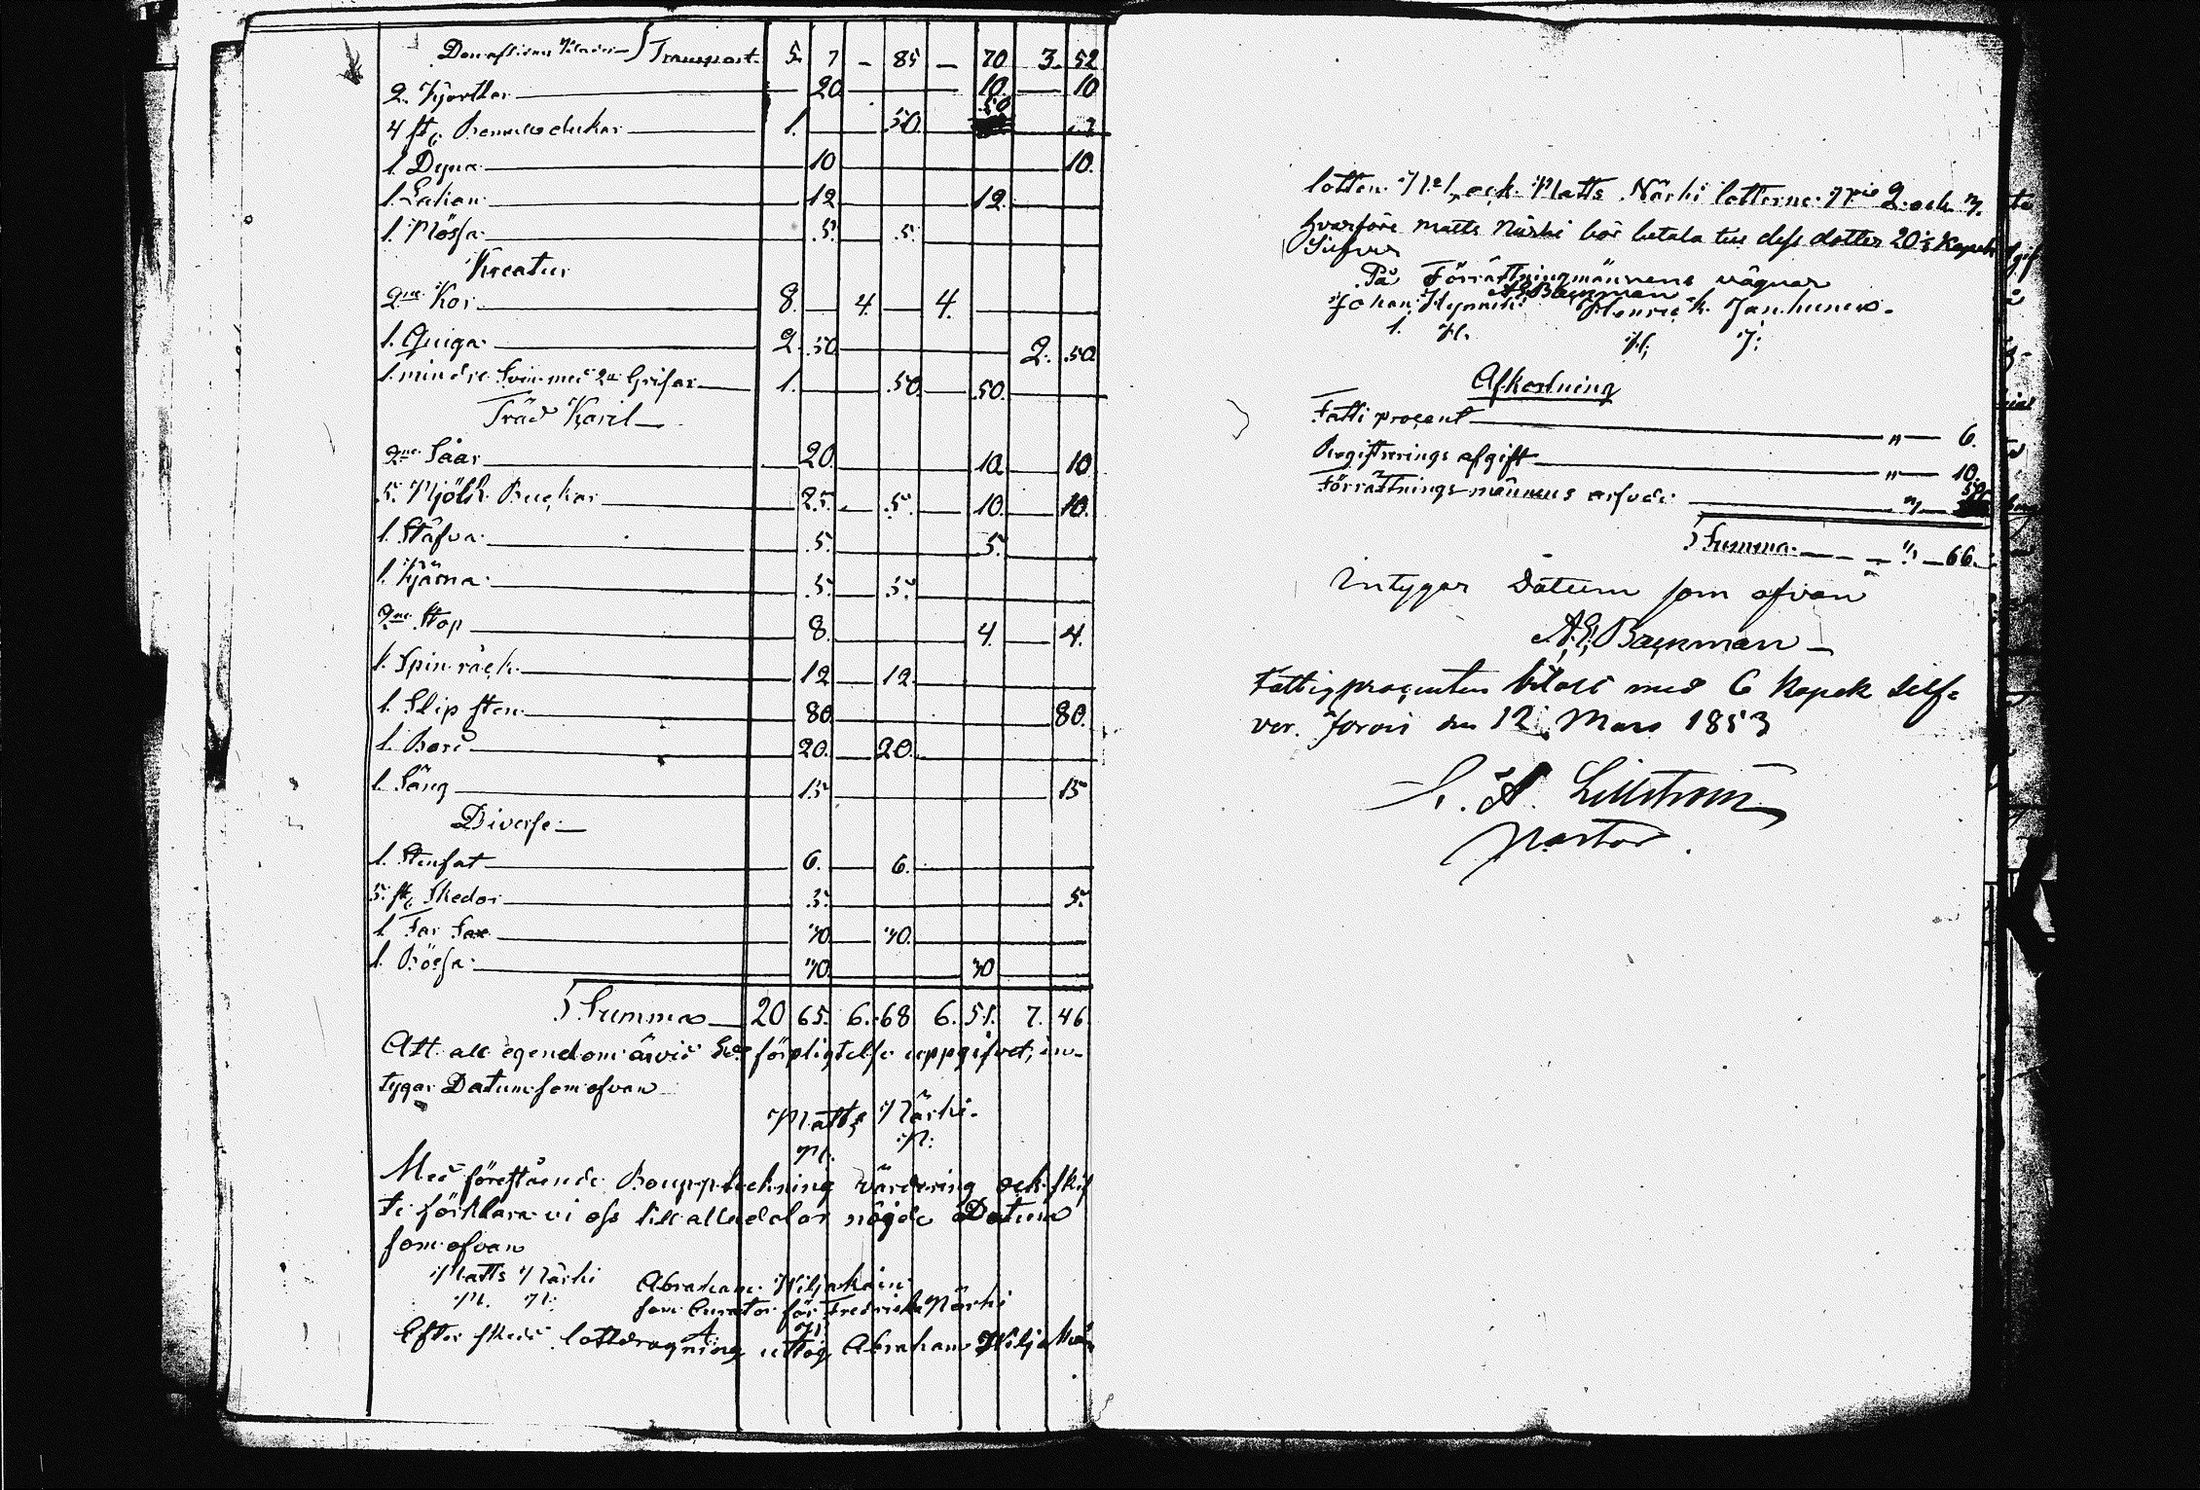 Transport 5. 7 – 85 – 70 3. 52
2. Kjortlar 20 10. 10
4 st. dukar 1. 50. 50
1. Dyna 10 10.
1. Lakan 12 12.
1. Mössa 5. 5.
Kreatur
2ne Kor 8. 4. 4.
1. Quiga 2. 50 2. 50
1. mindre Svin med 2ne Grisar 1. 50. 50.
Träd Käril
2ne Såar 20. 10. 10
5. Mjölk Buckar 25. 5. 10. 10.
1. Stäfva 5. 5.
1. Kjärna 5. 5.
2ne Stop 8. 4. 4.
1. Spin råck 12 12.
1. Slip sten 80. 80.
1. Bord 20. 20.
1. Säng 15 15
Diverse
1. Stenfat 6. 6.
5. st. Skedar 5. 5.
1 Får Sax
1. Bössa
Summa 20 65. 6. 68 6. 51. 7. 46
Att all egendom är vid Eds förpligtelse uppgifvet, in-
tygar Datum som ofvan
Matts Närhi
M. N.
Med förestående Bouppteckning värdering ock skif
te förklara vi oss till alla delar nögde Datum
som ofvan
Matts Närhi Abraham
M. N. som Curator för Fredrika Närhi
Efter skedd lottdragning uttog Abraham
lotten No 1, ock Matts Närhi lotterne No 2 och 3.
hvarföre Matts Närhi bör betala till dess dotter 20½ Kopek
Silfver
På Förrättningmännens vägnar
A. E. Backman
Johan Henrik Janhunen
J. H. H. J.
Afkortning
Fatti procent " 6.
Registrerings afgift " 10.
Förrättningsmännens arfvode " 50
Summa " 66.
Intygar Datum som ofvan
A. E. Backman
Fattigprocenten bitalt med 6 Kopek Silf-
ver. Jorois den 12 Mars 1853
Lillström
Pastor.